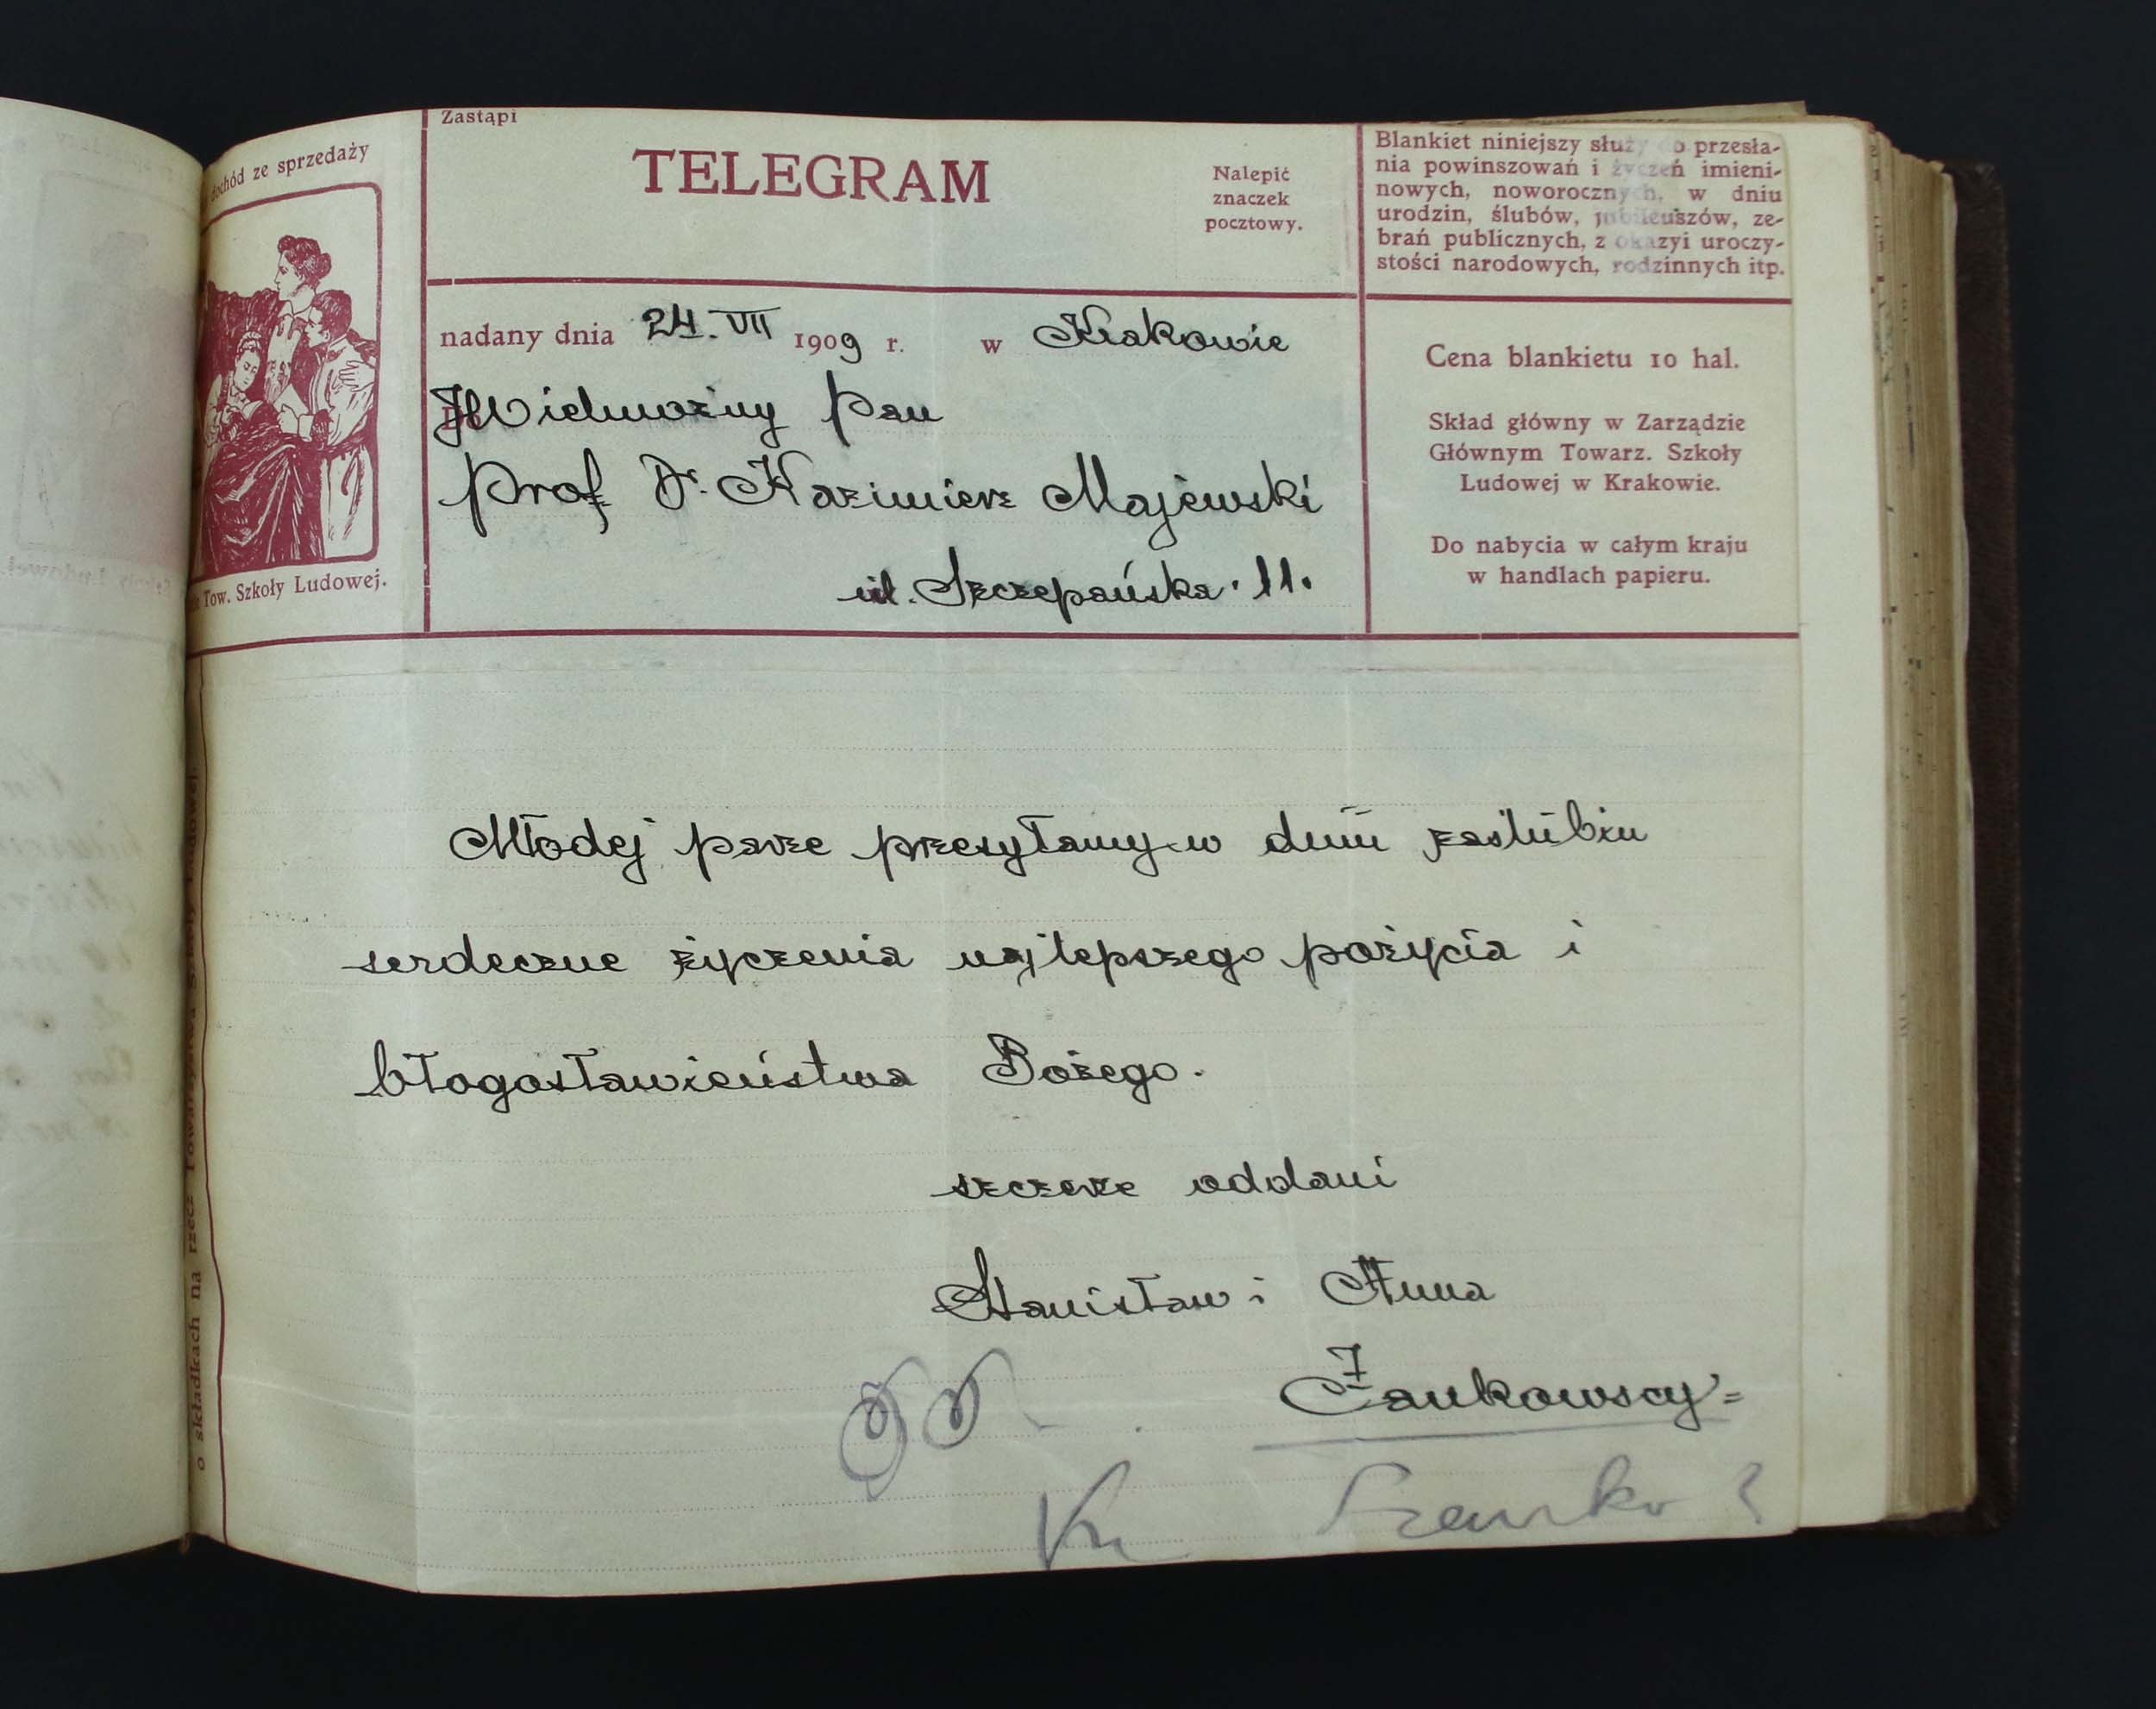 Zastąpi
dochód ze sprzedaży
TELEGRAM
Nalepić
znaczek
pocztowy.
Blankiet niniejszy służy do przesła-
nia powinszowań i życzeń imieni-
nowych, noworocznych, w dniu
urodzin, ślubów, jubileuszów, ze-
brań publicznych, z okazyi uroczy-
stości narodowych, rodzinnych itp.
nadany dnia 24. VII 1909 r. w Krakowie
JWielmożny Pan
Prof Dr. Kazimierz Majewski
ul. Szczepańska. 11.
Tow. Szkoły Ludowej.
Cena blankietu 10 hal.
Skład główny w Zarządzie
Głównym Towarz. Szkoły
Ludowej w Krakowie.
Do nabycia w całym kraju
w handlach papieru.
Młodej parze przesyłamy w dniu zaślubin
serdeczne życzenia najlepszego pożycia i
błogosławieństwa Bożego.
szczerze oddani
Stanisław i Anna
Jankowscy
o składkach na rzecz